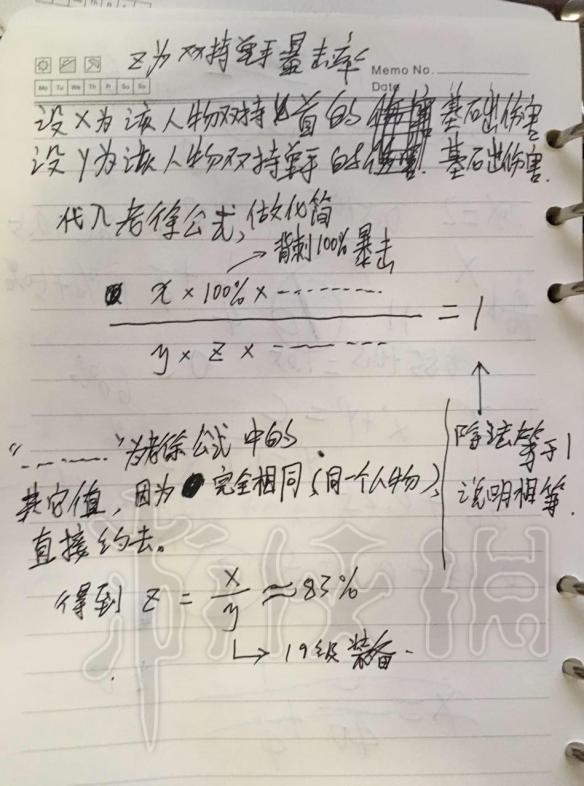 z为双持单手暴击率
Memo No.
Date
Mo Tu We Th Fr Sa Su
设X为该人物双持匕首的基础伤害
设y为该人物双持单手的基础伤害.
代入老徐公式,做化简
背刺100%暴击
x × 100% × -------- = 1
y × z × --------
"--------"为老徐公式中的
其它值,因为完全相同(同一个人物),
直接约去。
除法等于1
说明相等.
得到 z = x/y ≈ 83%
↳ 19级装备.